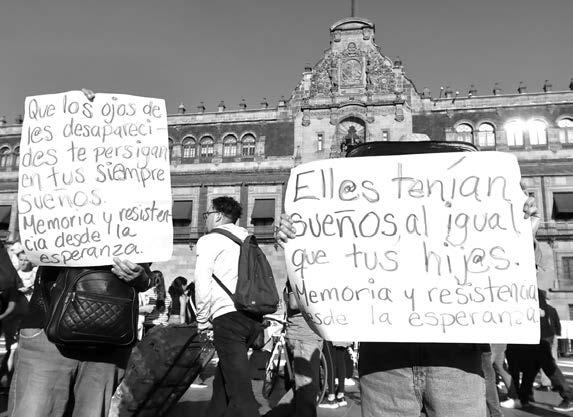 Que los ojos de
l@s desapareci-
des te persigan
en tus siempre
sueños.
Memoria y resisten
cia desde la
esperanza.
Ell@s tenían
sueños al igual
que tus hij@s.
Memoria y resistencia
desde la esperanza